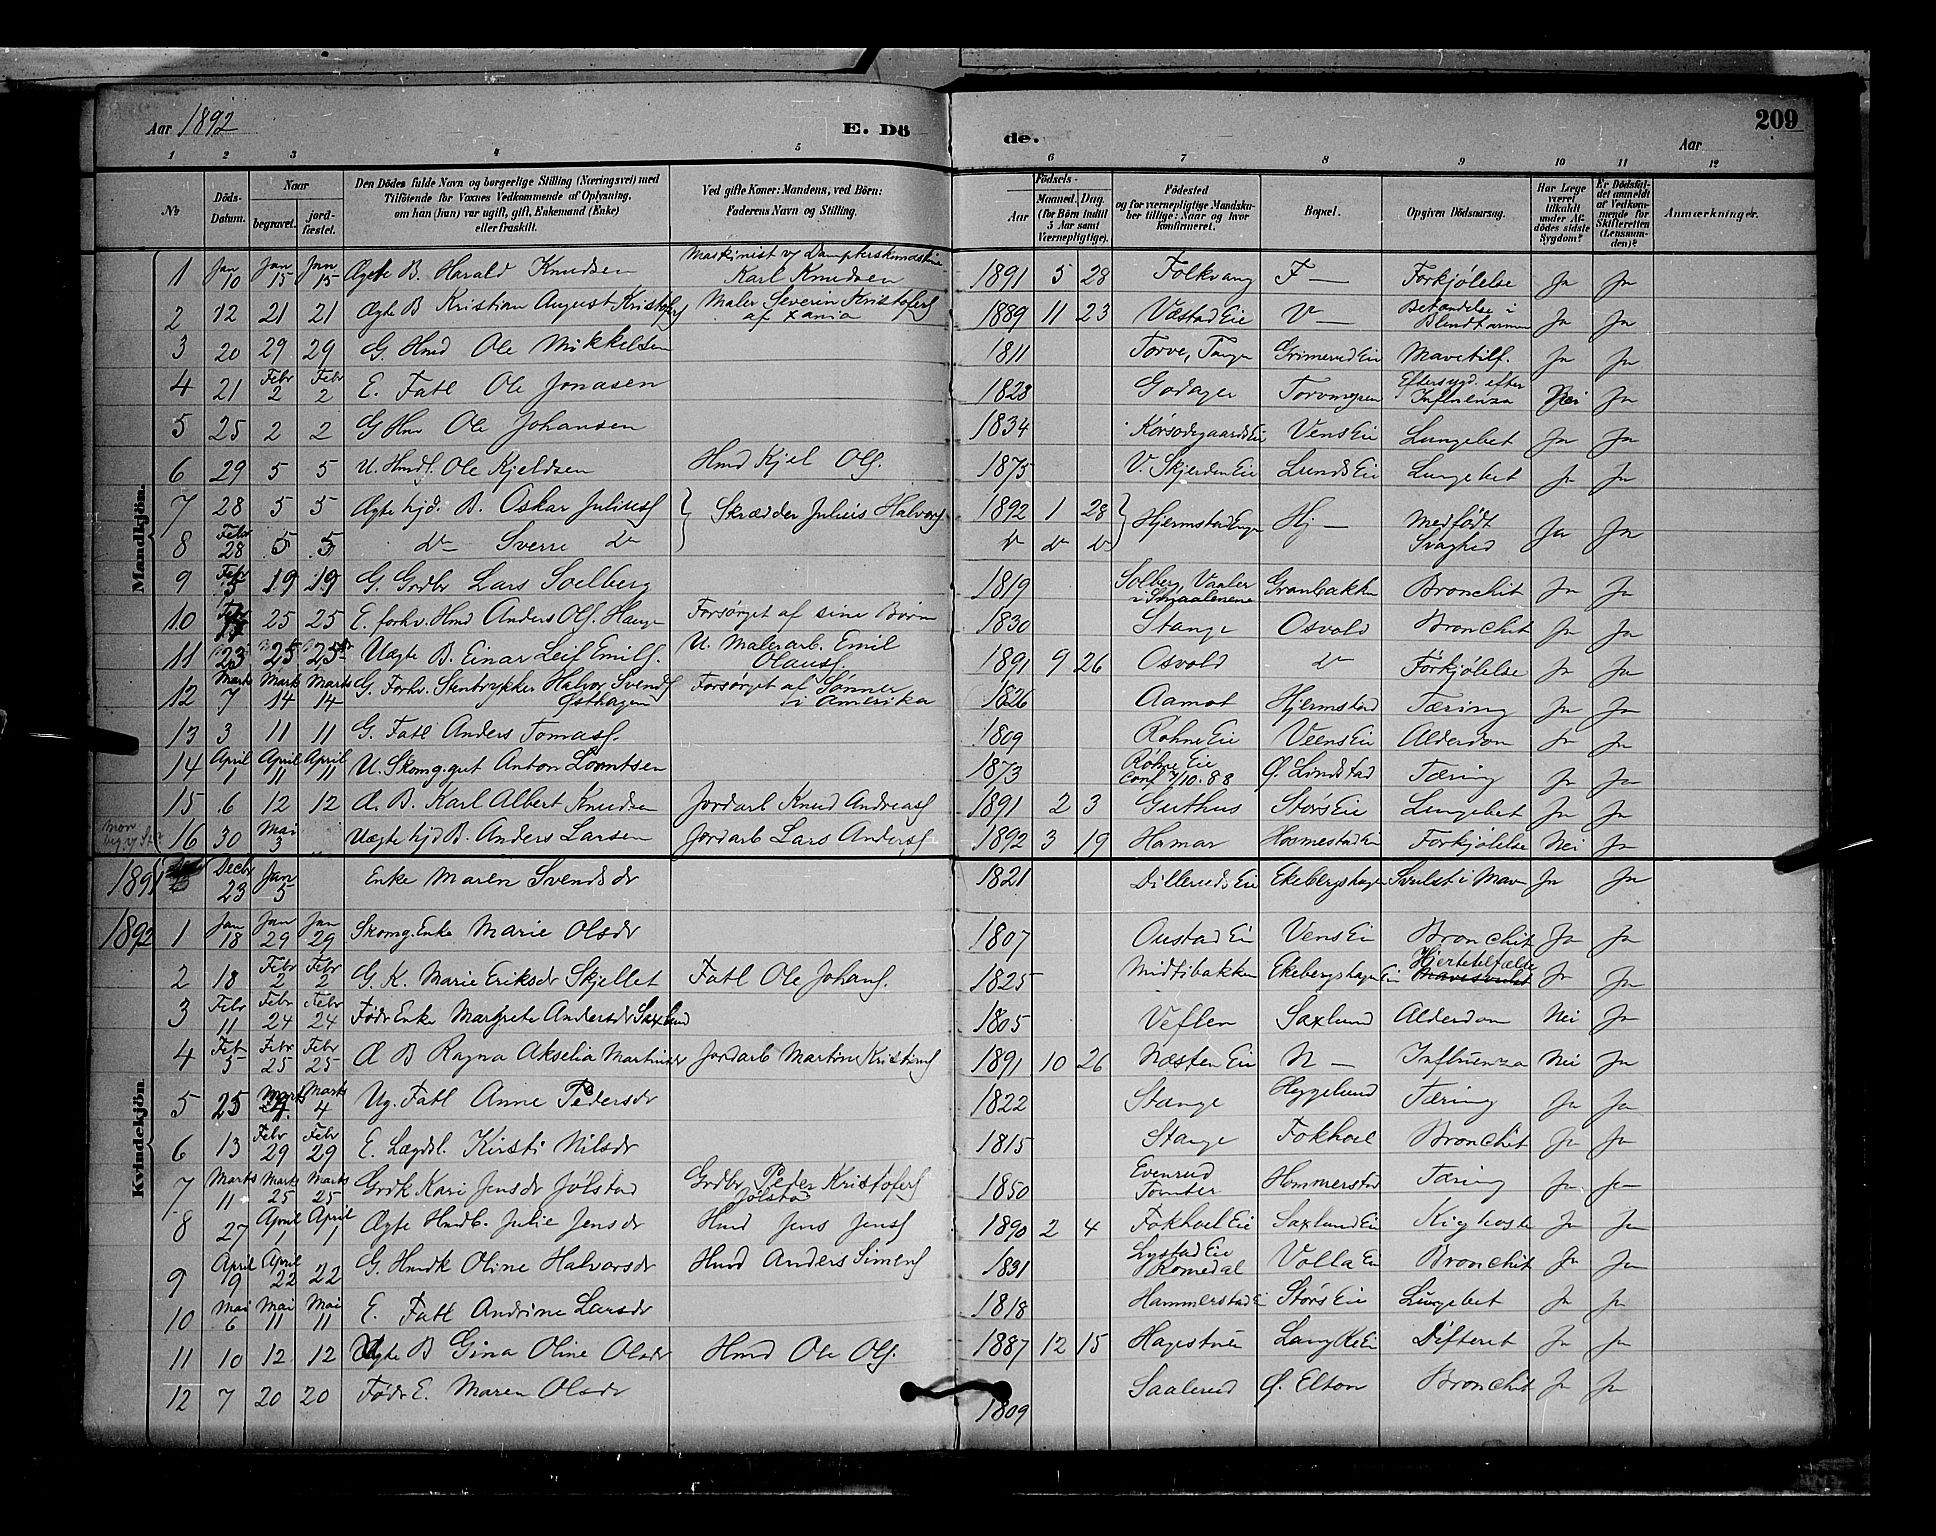 Aar 1892 E. Dö
1 2 3 4 5
№ Döds-Datum. Naar begravet. jord-fæstet. Den Dödes fulde Navn og borgerlige Stilling (Næringsvei) med Tilföiende for Voxnes Vedkommende af Oplysning, om han (hun) var ugift, gift, Enkemand (Enke) eller fraskilt. Ved gifte Koner: Mandens, ved Börn: Faderens Navn og Stilling.
de. Aar 209
6 7 8 9 10 11 12
Födsels- Aar Maaned. Dag. (for Börn indtil 5 Aar samt Værnepligtige). Födested og for værnepligtige Mandskaber tillige: Naar og hvor konfirmeret. Bopæl. Opgiven Dödsaarsag. Har Læge været tilkaldt under Afdödes sidste Sygdom? Er Dödsfaldet anmeldt af Vedkommende for Skifteretten (Lensmanden)? Anmærkninger.
Mandkjön.
1 Jan 10 Jan 15 Jan 15 Ægte B. Harald Knudsen Maskinist v/ Karl Knudsen 1891 5 28 Folkvang F — Forkjølelse Ja Ja
2 12 21 21 Ægte B Kristian August Kristofs Maler Severin Kristofers af Xania 1889 11 23 Væstad Eie V — Betændelse i Blindtarmen Ja Ja
3 20 29 29 G. Hmd Ole Mikkelsen 1811 Torve, Tangen Grimerud Eie Mavetilf. Ja Ja
4 21 Febr 2 Febr 2 E. Fatl Ole Jonasen 1823 Godager Eftersygd. efter Influenza Nei Ja
5 25 2 2 G Hm Ole Johansen 1834 Korsødegaards Ei Vens Eie Lungebet Ja Ja
6 29 5 5 U. Hmdf. Ole Kjeldsen Hmd Kjel Ols. 1875 V. Skjerden Eie Lunds Eie Lungebet Ja Ja
7 28 5 5 Ægte hjd. B. Oskar Juliuss Skrædder Julius Halvors 1892 1 28 Hjermstad Enge Hj — Medfødt Svaghed Ja Ja
8 Febr 28 5 5 do Sverre do do do do
9 Febr 3 19 19 G. Grdbr Lars Solberg 1819 Solberg, Vaaler i Smaalenene Granbakken Bronchit Ja Ja
10 Febr 25 25 E. forhv. Hmd Anders Ols. Hauge Forsørget af sine Børn 1830 Stange Osvold Bronchit Ja Ja
11 23 25 25 Uægte B. Einar Leif Emils. U. Malerarb. Emil Olaus. 1891 9 26 Osvold do Forkjølelse Ja Ja
12 Marts 7 Marts 14 Marts 14 G. Forhv. Stentrykker Halvor Svends Østhagen Forsørget af Sønner i Amerika 1826 Aamot Hjermstad Tæring Ja Ja
13 3 11 11 G. Fatl Anders Tomass. 1809 Røhne Eie Veens Eie Alderdom Ja Ja
14 April 1 April 11 April 11 U. Skomg.gut Anton Lorntsen 1873 Røhne Eie Conf 7/10. 88 Ø. Lindstad Tæring Ja Ja
15 6 12 12 Æ. B. Karl Albert Knudsen Jordarb Knud Andreass 1891 2 3 Guthus Størs Eie Lungebet Ja Ja
16 30 Mai 3 Uægte hjd B. Anders Larsen Jordarb Lars Anders 1892 3 19 Hamar Hommestad Ei Forkjølelse Nei Ja
Kvindekjön.
1891 Decbr 23 Jan 5 Enke Maren Svendsdr 1821 Dillerud Eie Ekebergshagen Svulst i Mav Ja Ja
1892 1 Jan 18 Jan 29 Jan 29 Skomg. Enke Marie Olsdr 1807 Oustad Ei Vens Ei Bronchit Ja Ja
2 18 Febr 2 Febr 2 G. K. Marie Eriksdr Skjellet Fatl Ole Johans. 1825 Midtibakken Ekebergshagen Ei Hjertetilfælde Mavesvulst Ja Ja
3 Febr 11 Febr 24 Febr 24 Føðr Enke Margrete Andersdr Saxlund 1805 Veflen Saxlund Alderdom Nei Ja
4 Feb 5 Febr 25 Febr 25 Æ B Ragna Akselia Martinsdr Jordarb Martin Kristians 1891 10 26 Næsten Eie N — Influenza Nei Ja
5 25 Marts 4 Marts 4 Ug. Fatl Anne Pedersdr 1822 Stange Hyggelund Tæring Ja Ja
6 13 Febr 29 Febr 29 E. Lægdsl. Kirsti Nilsdr 1815 Stange Fokhoel Bronchit Ja Ja
7 Marts 11 Marts 25 Marts 25 Grdk Kari Jensdr Jølstad Grdbr Peder Kristofers Jølstad 1850 Evenrud Tomter Hommerstad Tæring Ja Ja
8 27 April 1 April 1 Ægte Hmdb. Julie Jensdr Hmd Jens Jens 1890 2 4 Fokhoel Eie Saxlund Eie Kighoste Ja Ja
9 April 19 April 22 22 G. Hmdk Oline Halvorsdr Hmd Anders Simens 1831 Lystad Eie Romedal Volla Ei Bronchit Ja Ja
10 Mai 6 Mai 11 Mai 11 E. Fatl Andrine Larsdr 1818 Hammerstad Ei Størs Eie Lungebet Ja Ja
11 10 12 12 Uægte B Gina Oline Olsdr Hmd Ole Ols. 1887 12 15 Difterit Ja Ja
12 7 20 20 Fødr E. Maren Olsdr 1809 Saalerud Ø. Elton Bronchit Ja Ja